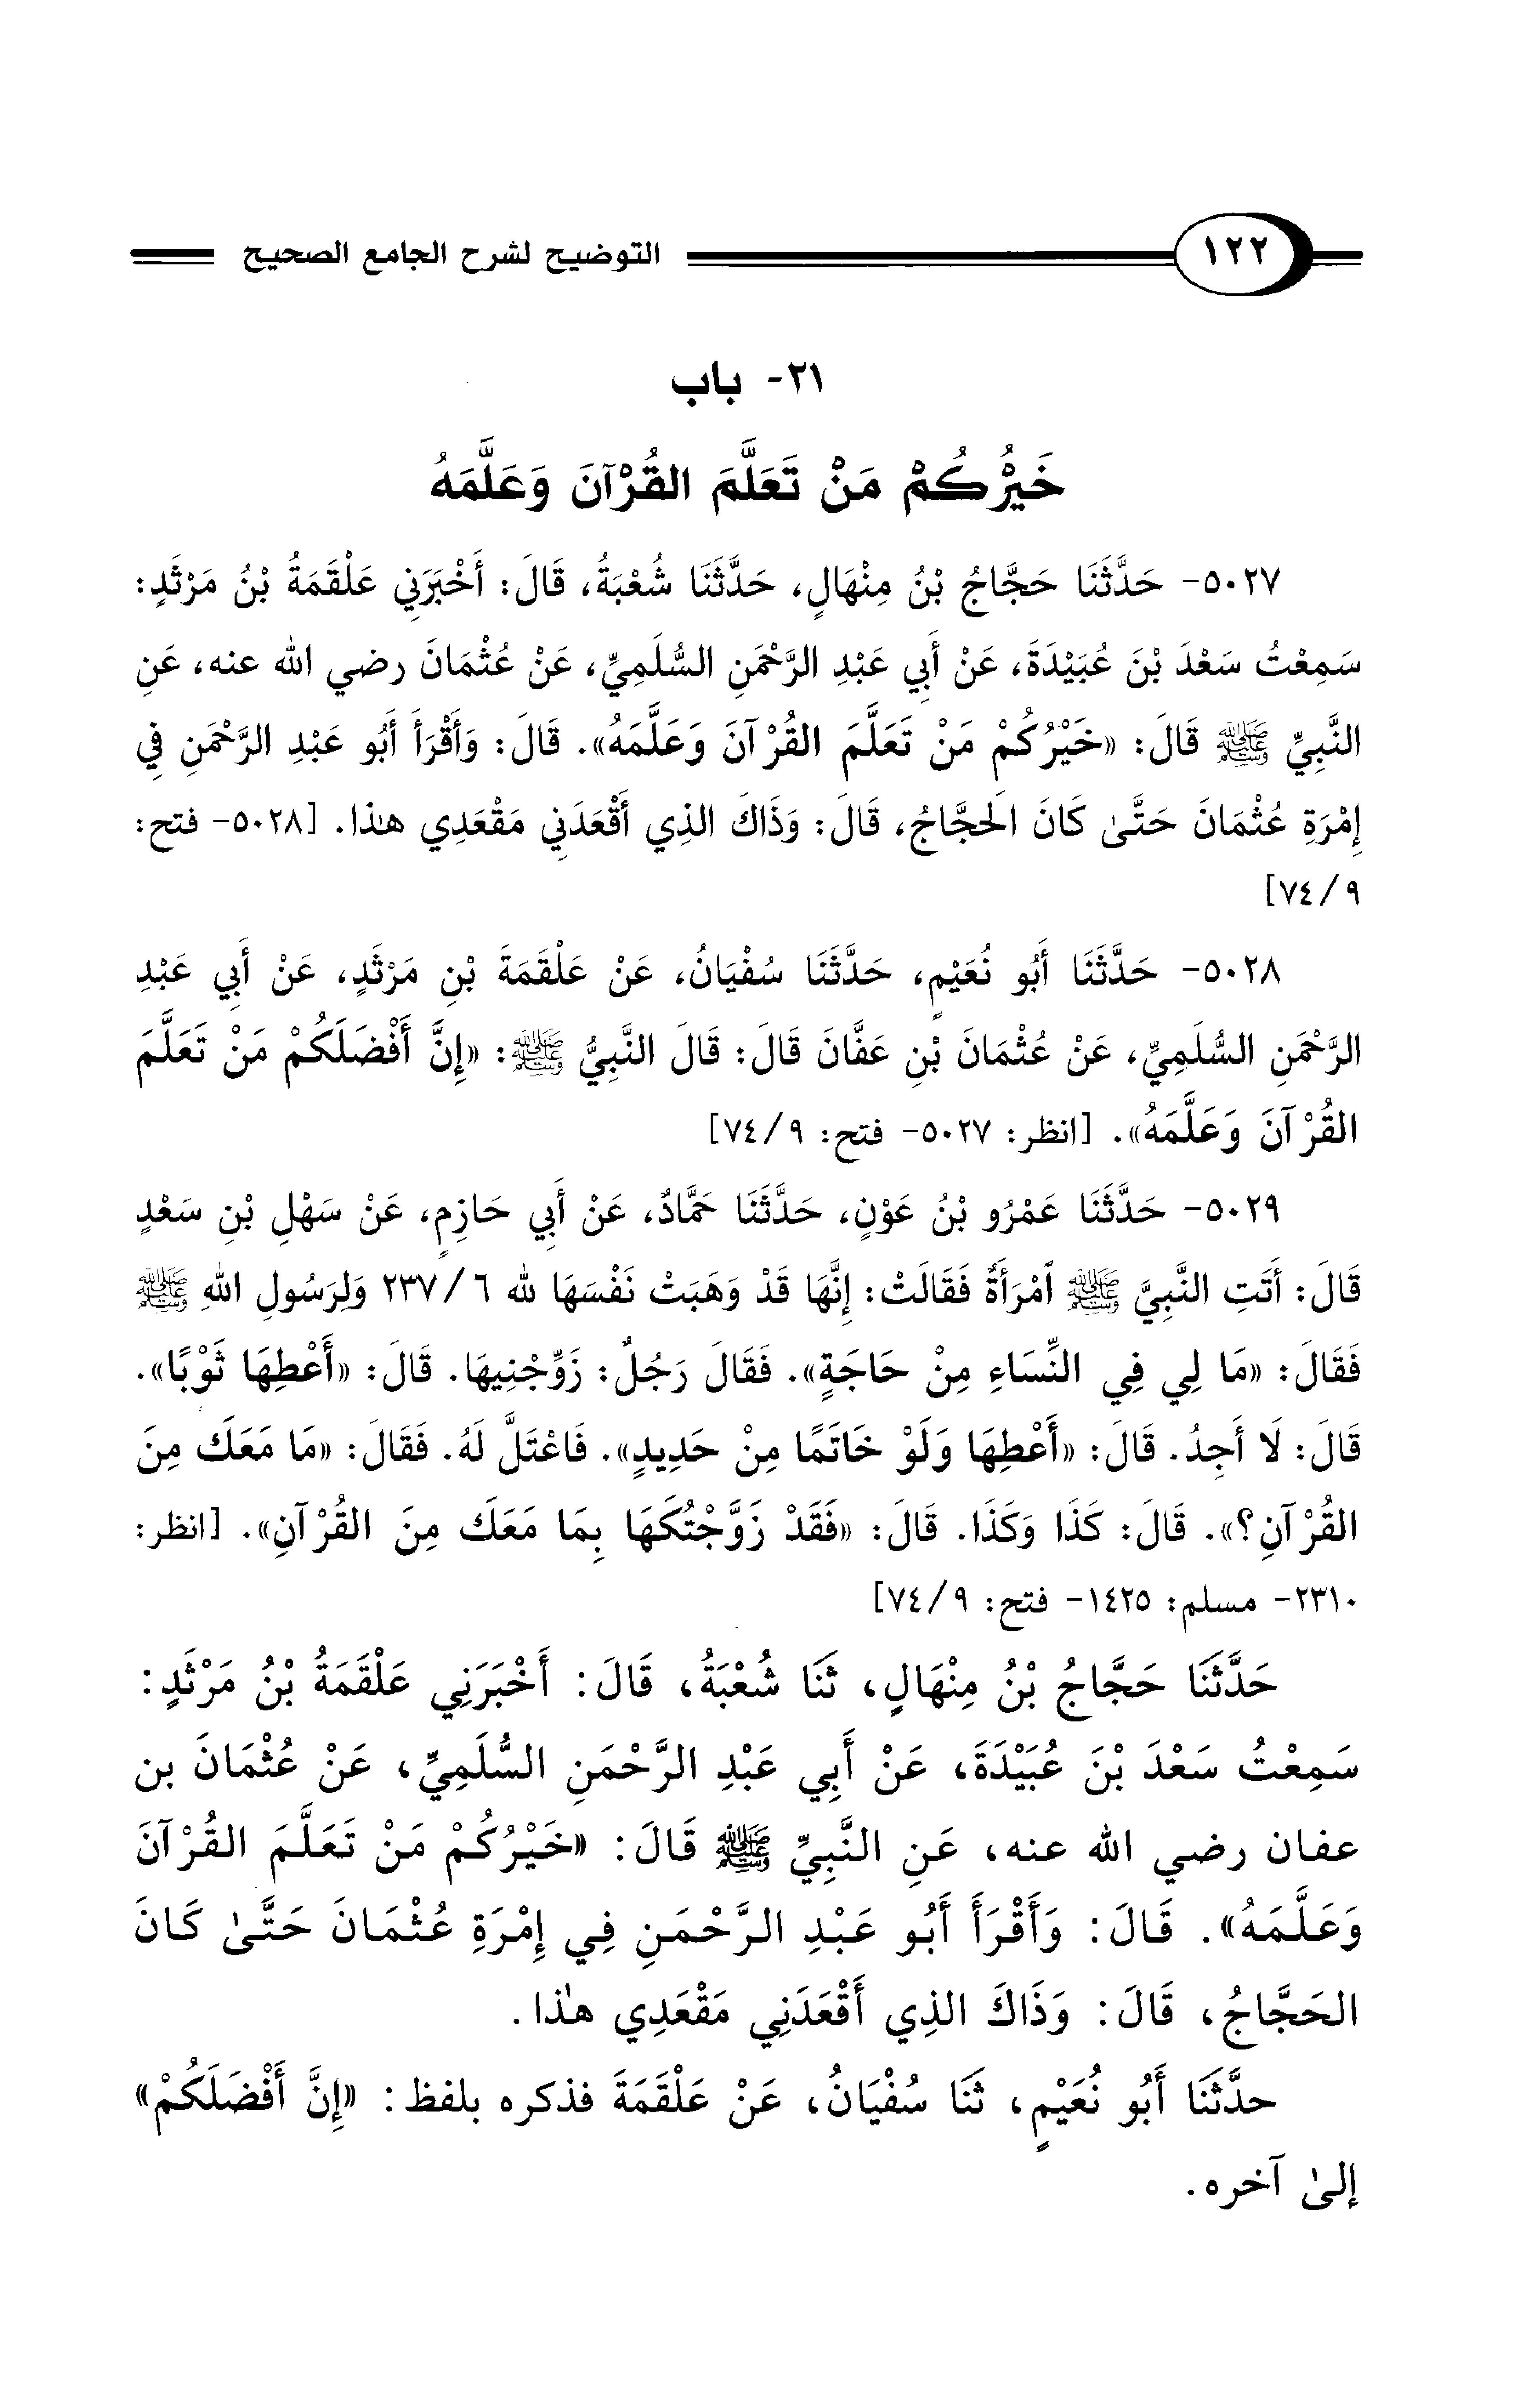 ١٢٢ التوضيح لشرح الجامع الصحيح
٢١- باب
خَيْرُكُمْ مَنْ تَعَلَّمَ القُرْآنَ وَعَلَّمَهُ
٥٠٢٧- حَدَّثَنَا حَجَّاجُ بْنُ مِنْهَالٍ، حَدَّثَنَا شُعْبَةُ، قَالَ: أَخْبَرَنِي عَلْقَمَةُ بْنُ مَرْثَدٍ:
سَمِعْتُ سَعْدَ بْنَ عُبَيْدَةَ، عَنْ أَبِي عَبْدِ الرَّحْمَنِ السُّلَمِيِّ، عَنْ عُثْمَانَ رضي الله عنه، عَنِ
النَّبِيِّ ﷺ قَالَ: «خَيْرُكُمْ مَنْ تَعَلَّمَ القُرْآنَ وَعَلَّمَهُ». قَالَ: وَأَقْرَأَ أَبُو عَبْدِ الرَّحْمَنِ فِي
إِمْرَةِ عُثْمَانَ حَتَّىٰ كَانَ الَحجَّاجُ، قَالَ: وَذَاكَ الذِي أَقْعَدَنِي مَقْعَدِي هذا. [٥٠٢٨- فتح:
٩/ ٧٤]
٥٠٢٨- حَدَّثَنَا أَبُو نُعَيْمٍ، حَدَّثَنَا سُفْيَانُ، عَنْ عَلْقَمَةَ بْنِ مَرْثَدٍ، عَنْ أَبِي عَبْدِ
الرَّحْمَنِ السُّلَمِيِّ، عَنْ عُثْمَانَ بْنِ عَفَّانَ قَالَ: قَالَ النَّبِيُّ ﷺ: «إِنَّ أَفْضَلَكُمْ مَنْ تَعَلَّمَ
القُرْآنَ وَعَلَّمَهُ». [انظر: ٥٠٢٧- فتح: ٩/ ٧٤]
٥٠٢٩- حَدَّثَنَا عَمْرُو بْنُ عَوْنٍ، حَدَّثَنَا حَمَّادٌ، عَنْ أَبِي حَازِمٍ، عَنْ سَهْلِ بْنِ سَعْدٍ
قَالَ: أَتَتِ النَّبِيَّ ﷺ ٱمْرَأَةٌ فَقَالَتْ: إِنَّهَا قَدْ وَهَبَتْ نَفْسَهَا لله ٦/ ٢٣٧ وَلِرَسُولِ اللهِ ﷺ
فَقَالَ: «مَا لِي فِي النِّسَاءِ مِنْ حَاجَةٍ». فَقَالَ رَجُلٌ: زَوِّجْنِيهَا. قَالَ: «أَعْطِهَا ثَوْبًا».
قَالَ: لَا أَجِدُ. قَالَ: «أَعْطِهَا وَلَوْ خَاتَمًا مِنْ حَدِيدٍ». فَاعْتَلَّ لَهُ. فَقَالَ: «مَا مَعَكَ مِنَ
القُرْآنِ؟». قَالَ: كَذَا وَكَذَا. قَالَ: «فَقَدْ زَوَّجْتُكَهَا بِمَا مَعَكَ مِنَ القُرْآنِ». [انظر:
٢٣١٠- مسلم: ١٤٢٥- فتح: ٩/ ٧٤]
حَدَّثَنَا حَجَّاجُ بْنُ مِنْهَالٍ، ثَنَا شُعْبَةُ، قَالَ: أَخْبَرَنِي عَلْقَمَةُ بْنُ مَرْثَدٍ:
سَمِعْتُ سَعْدَ بْنَ عُبَيْدَةَ، عَنْ أَبِي عَبْدِ الرَّحْمَنِ السُّلَمِيِّ، عَنْ عُثْمَانَ بن
عفان رضي الله عنه، عَنِ النَّبِيِّ ﷺ قَالَ: «خَيْرُكُمْ مَنْ تَعَلَّمَ القُرْآنَ
وَعَلَّمَهُ». قَالَ: وَأَقْرَأَ أَبُو عَبْدِ الرَّحْمَنِ فِي إِمْرَةِ عُثْمَانَ حَتَّىٰ كَانَ
الحَجَّاجُ، قَالَ: وَذَاكَ الذِي أَقْعَدَنِي مَقْعَدِي هٰذا.
حدَّثَنَا أَبُو نُعَيْمٍ، ثَنَا سُفْيَانُ، عَنْ عَلْقَمَةَ فذكره بلفظ: «إِنَّ أَفْضَلَكُمْ»
إلىٰ آخره.